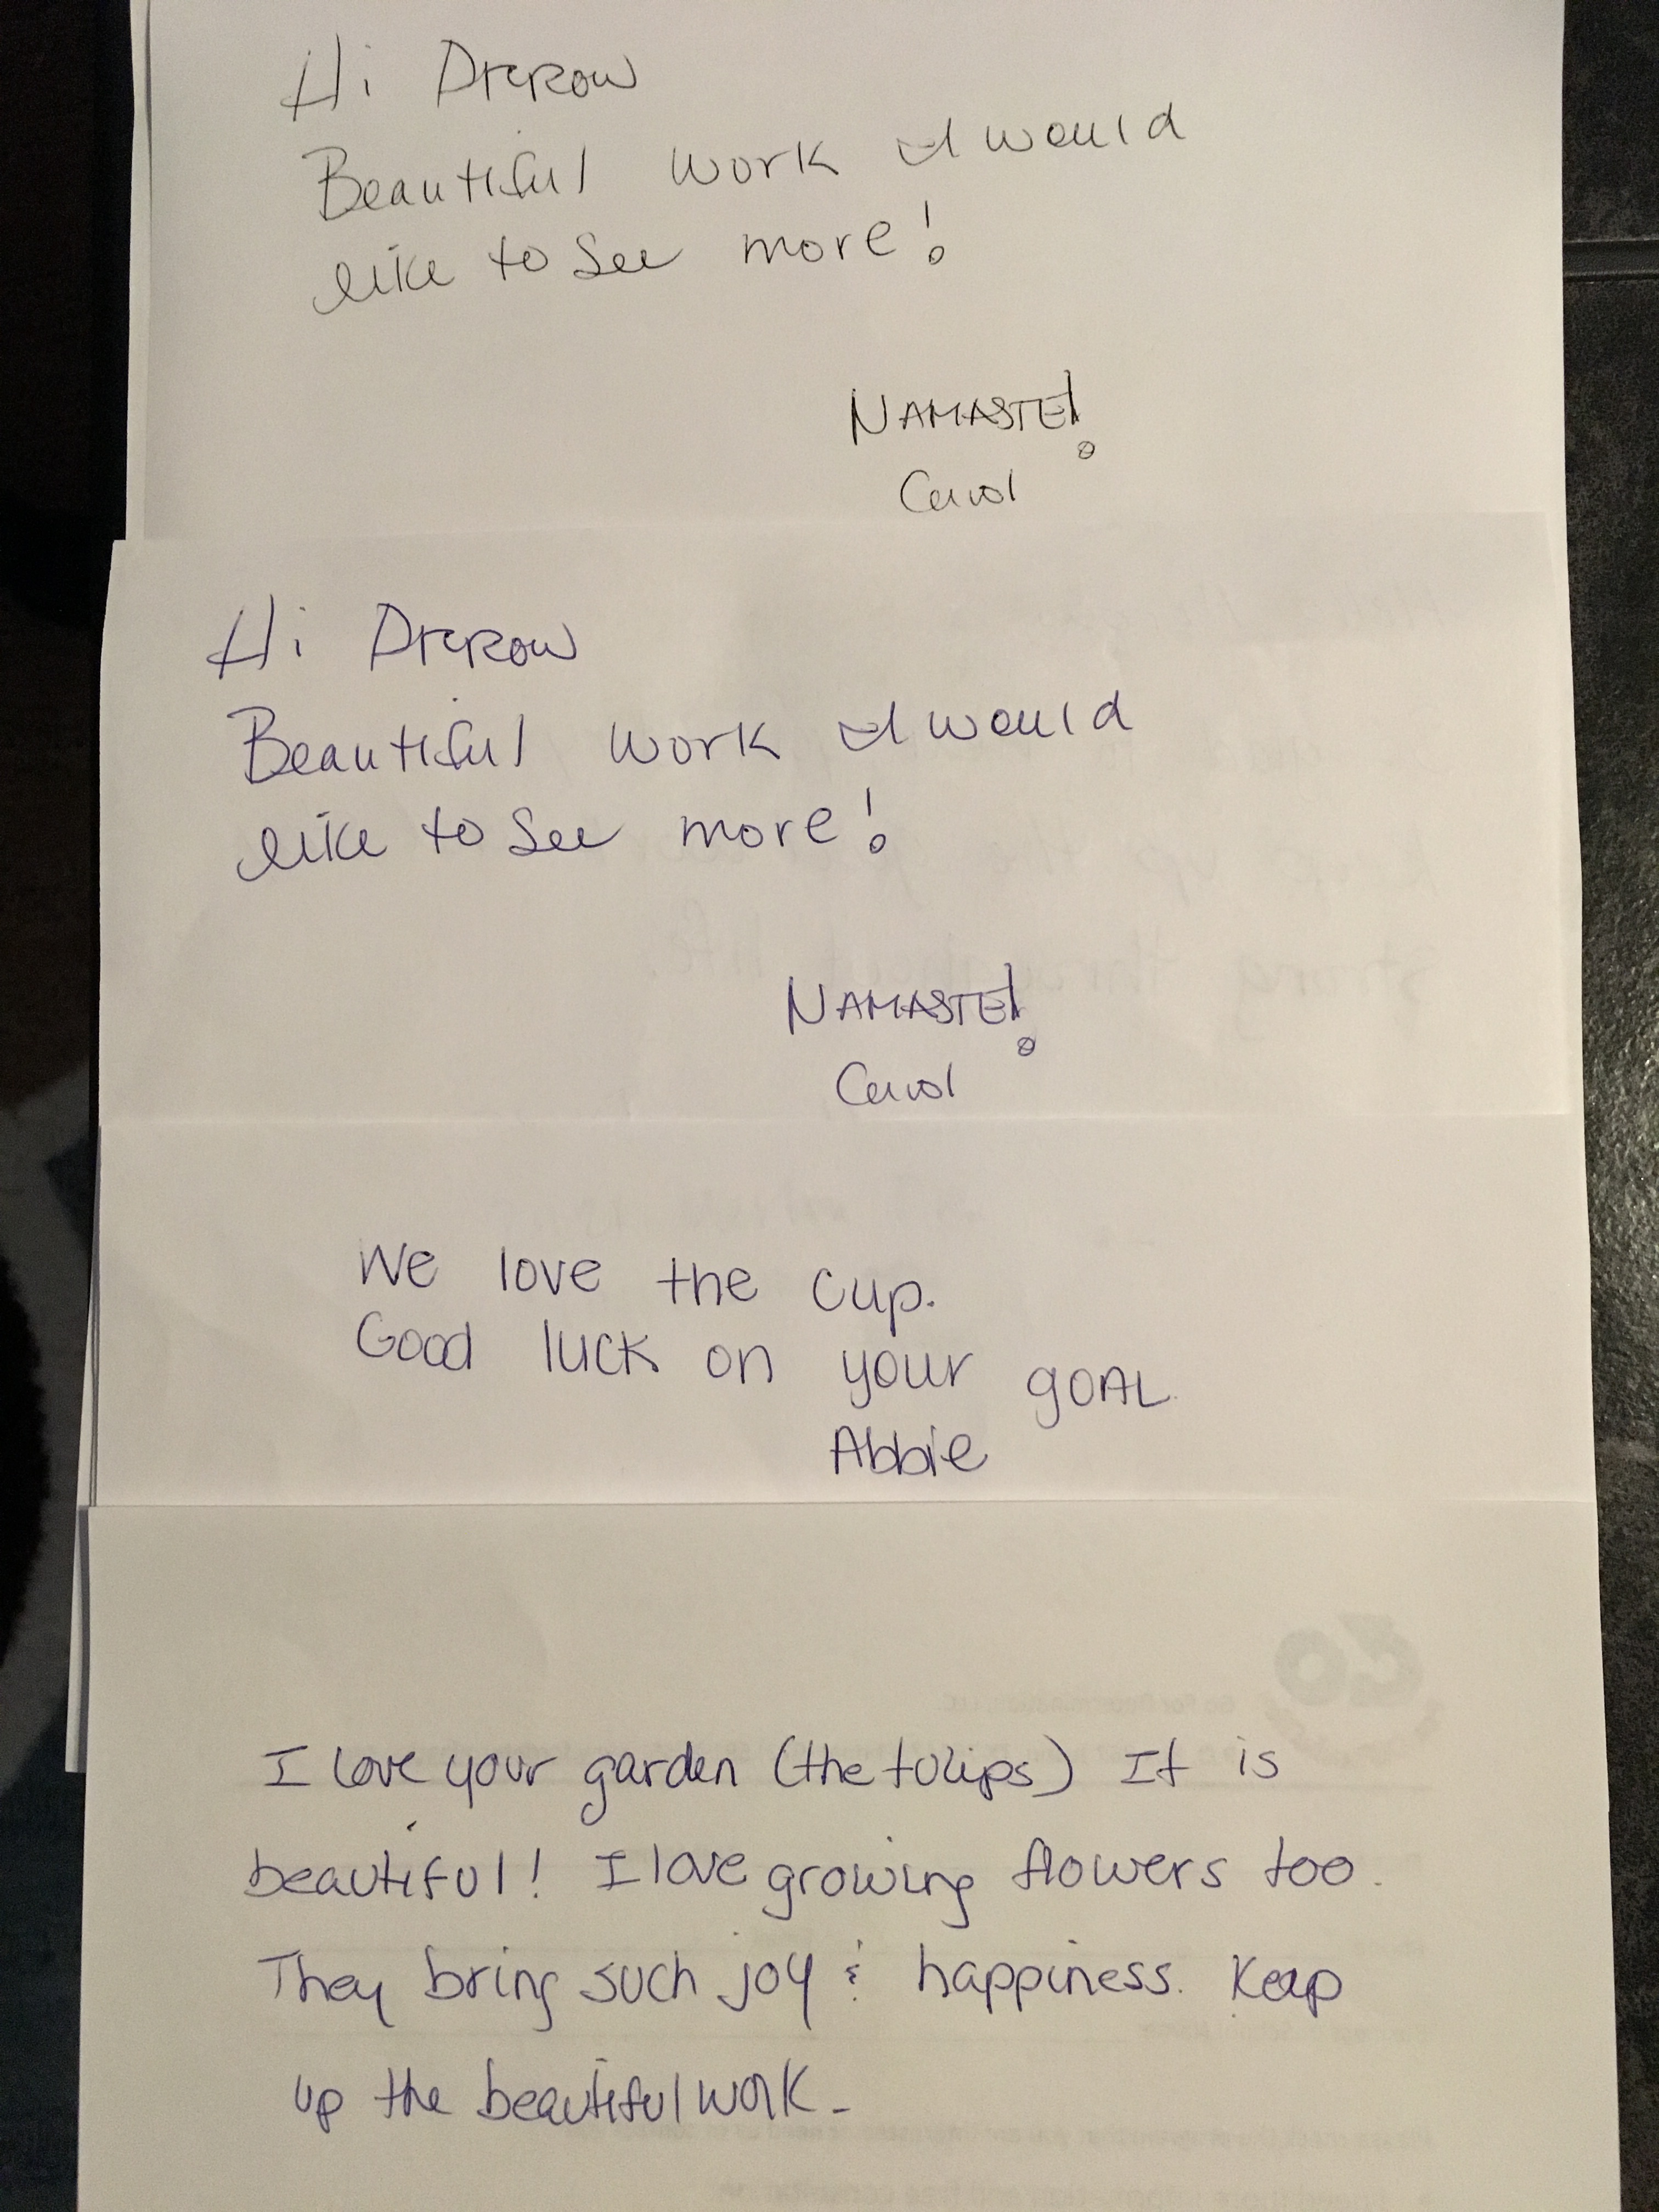 Hi
Beautiful work I would
like to see more!
NAMASTE!
Carol
Hi
Beautiful work I would
like to see more!
NAMASTE!
Carol
We love the cup.
Good luck on your gOAL.
Abbie
I love your garden (the tulips) It is
beautiful! I love growing flowers too.
They bring such joy & happiness. Keep
up the beautiful work-